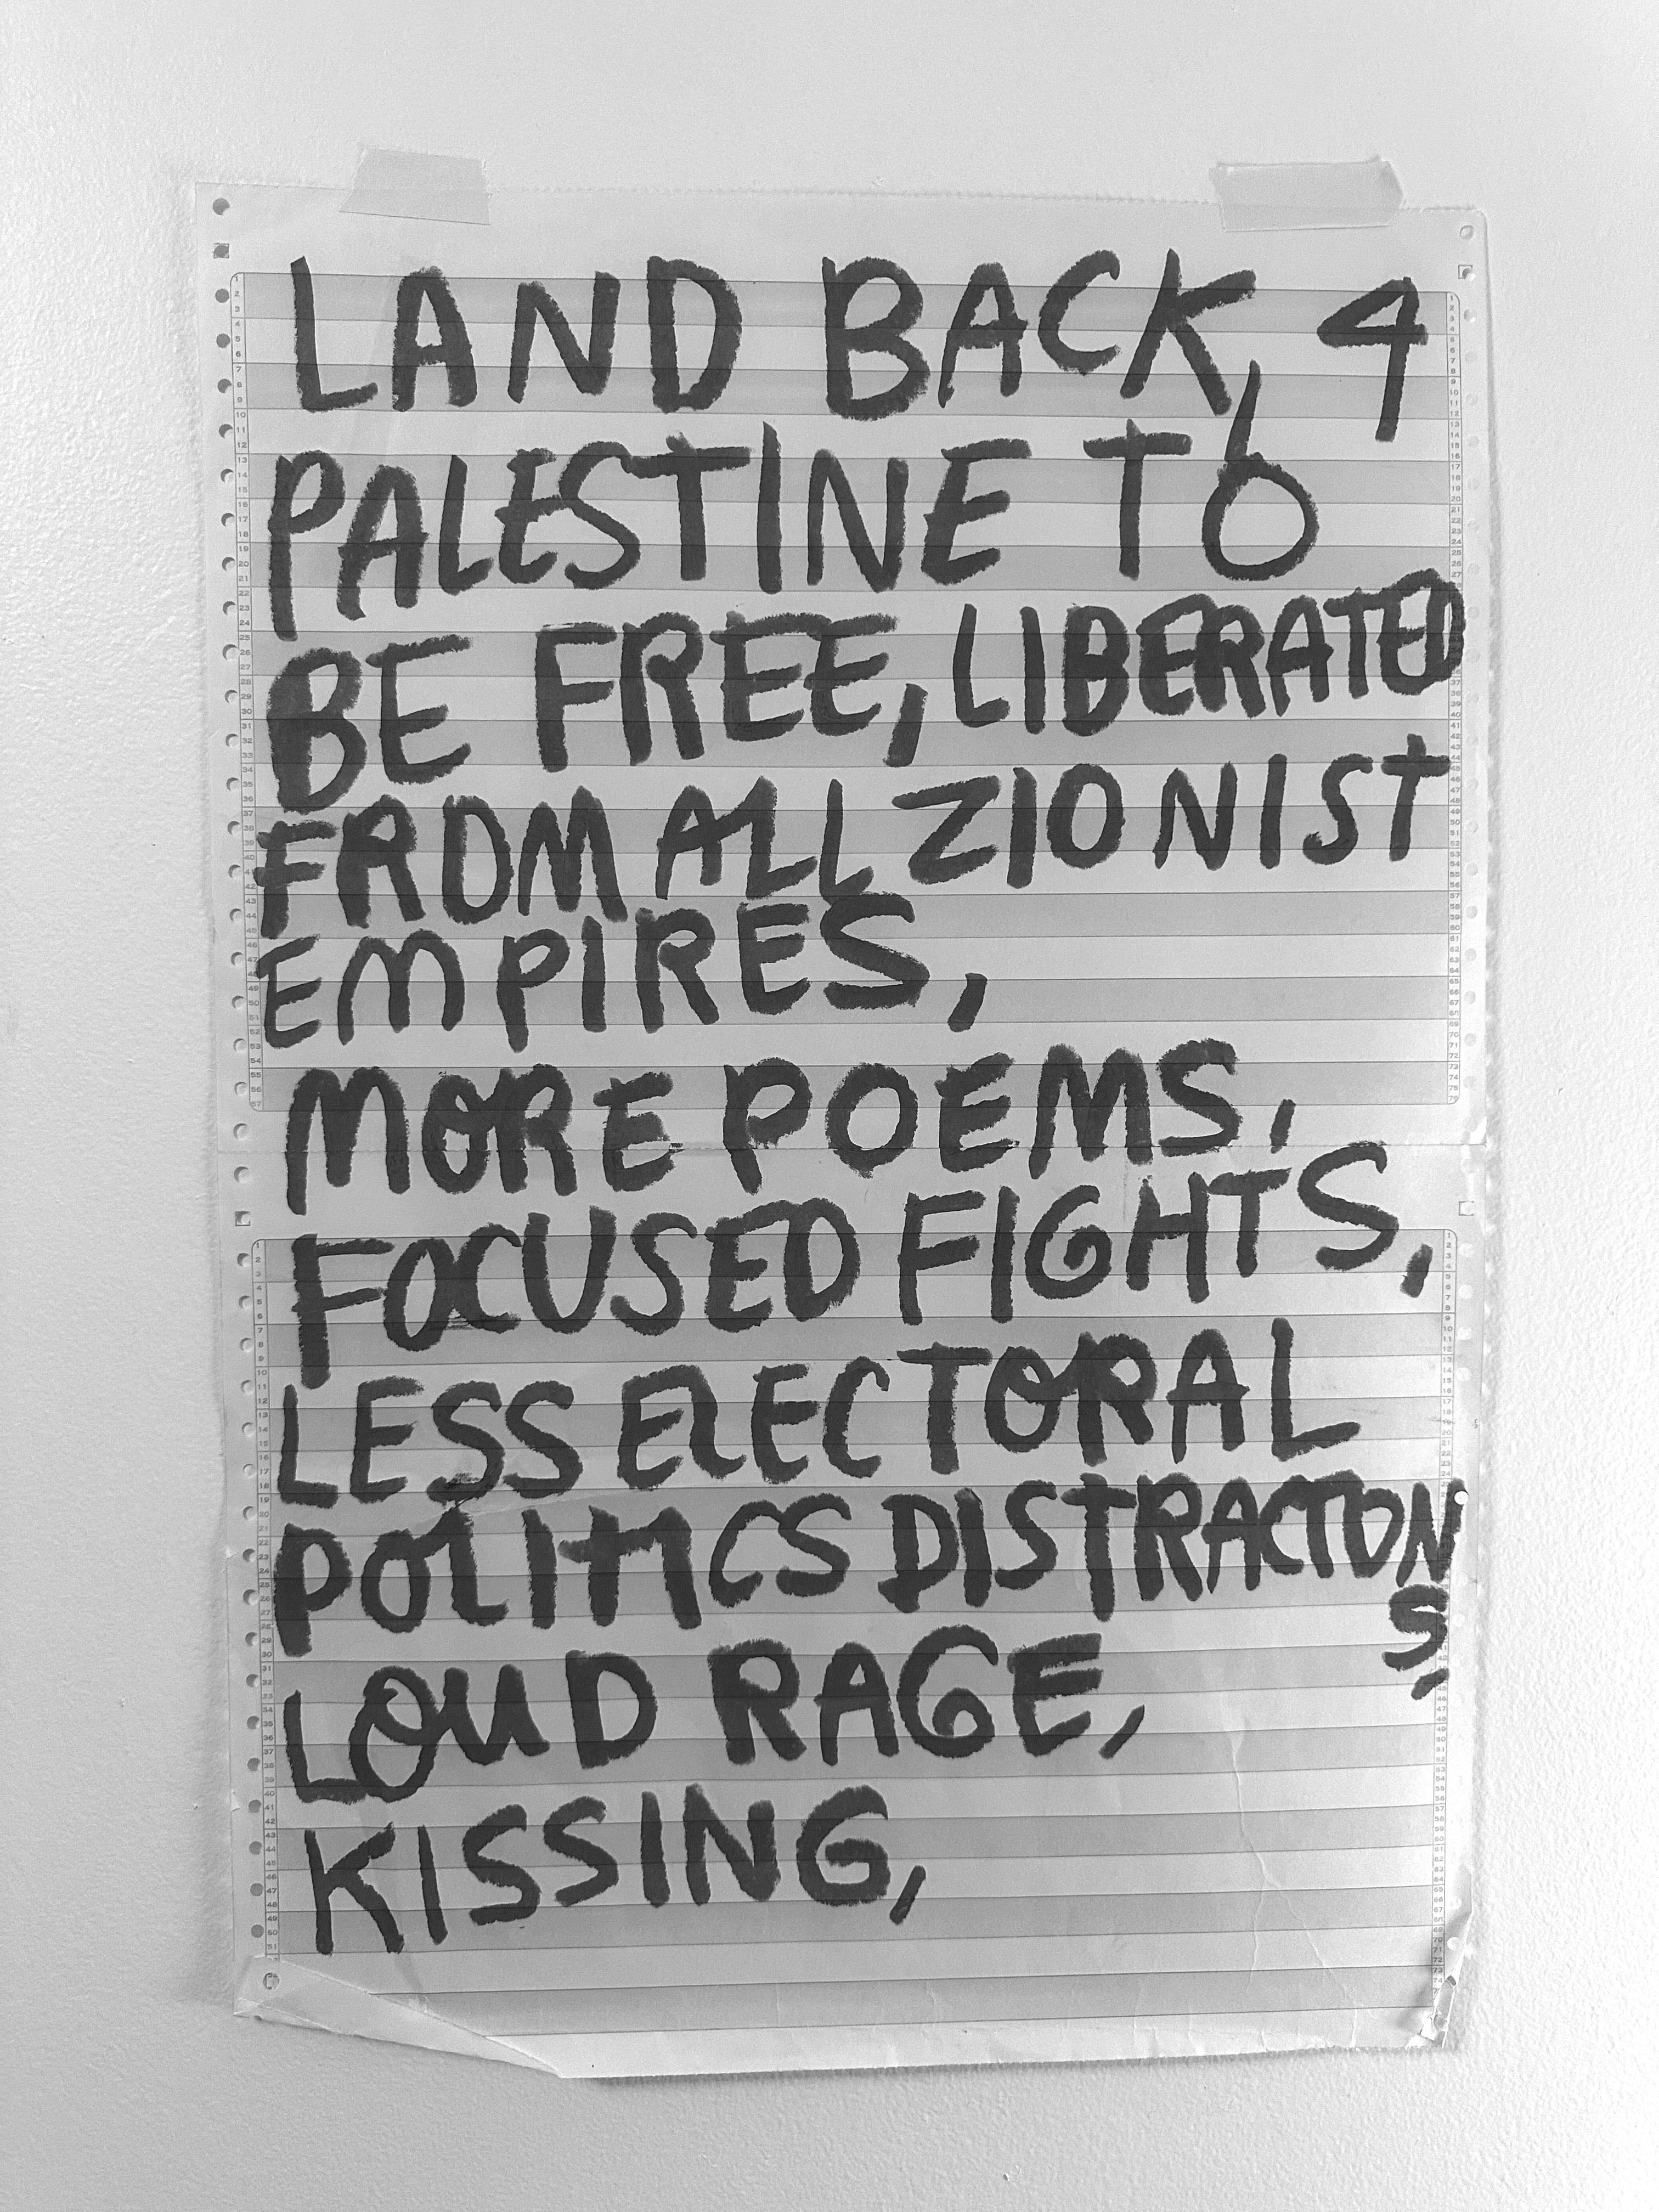 LAND BACK, 4
PALESTINE TO
BE FREE, LIBERATED
FROM ALL ZIONIST
EMPIRES,
MORE POEMS,
FOCUSED FIGHTS,
LESS ELECTORAL
POLITICS DISTRACTON
S,
LOUD RAGE,
KISSING,